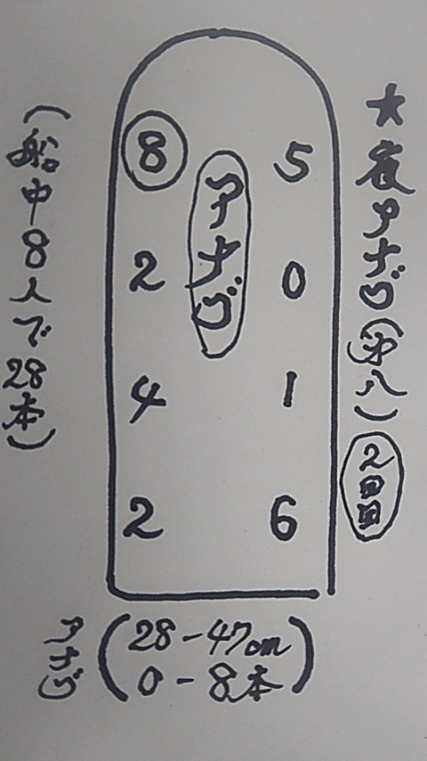 ★夜アナゴ(沖八)
2回目
アナゴ
8 5
2 0
4 1
2 6
(船中8人で28本)
アナゴ
(28-47cm
0-8本)